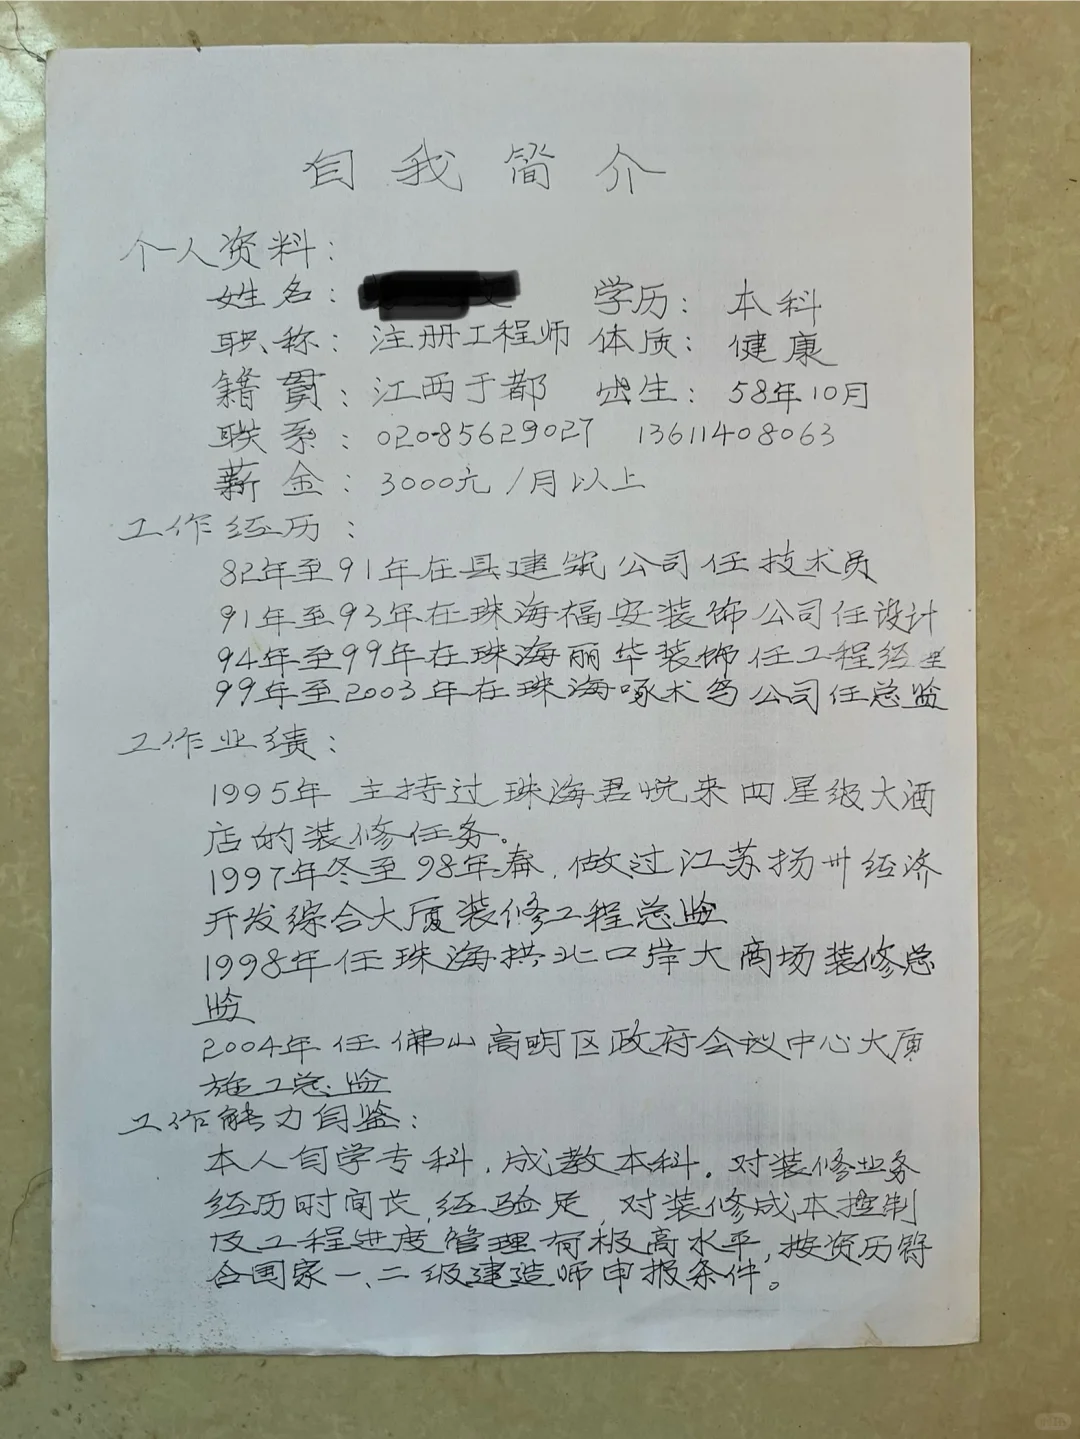 自我简介
个人资料：
姓名： 学历：本科
职称：注册工程师 体质：健康
籍贯：江西于都 出生：58年10月
联系：020-85629027 13611408063
薪金：3000元/月以上
工作经历：
82年至91年在县建筑公司任技术员
91年至93年在珠海福安装饰公司任设计
94年至99年在珠海丽华装饰任工程经理
99年至2003年在珠海啄木鸟公司任总监
工作业绩：
1995年 主持过珠海君悦来四星级大酒
店的装修任务。
1997年冬至98年春，做过江苏扬州经济
开发综合大厦装修工程总监
1998年任珠海拱北口岸大商场装修总
监
2004年任佛山高明区政府会议中心大厦
施工总监
工作能力自鉴：
本人自学专科，成教本科。对装修业务
经历时间长，经验足，对装修成本控制
及工程进度管理有极高水平，按资历符
合国家一、二级建造师申报条件。